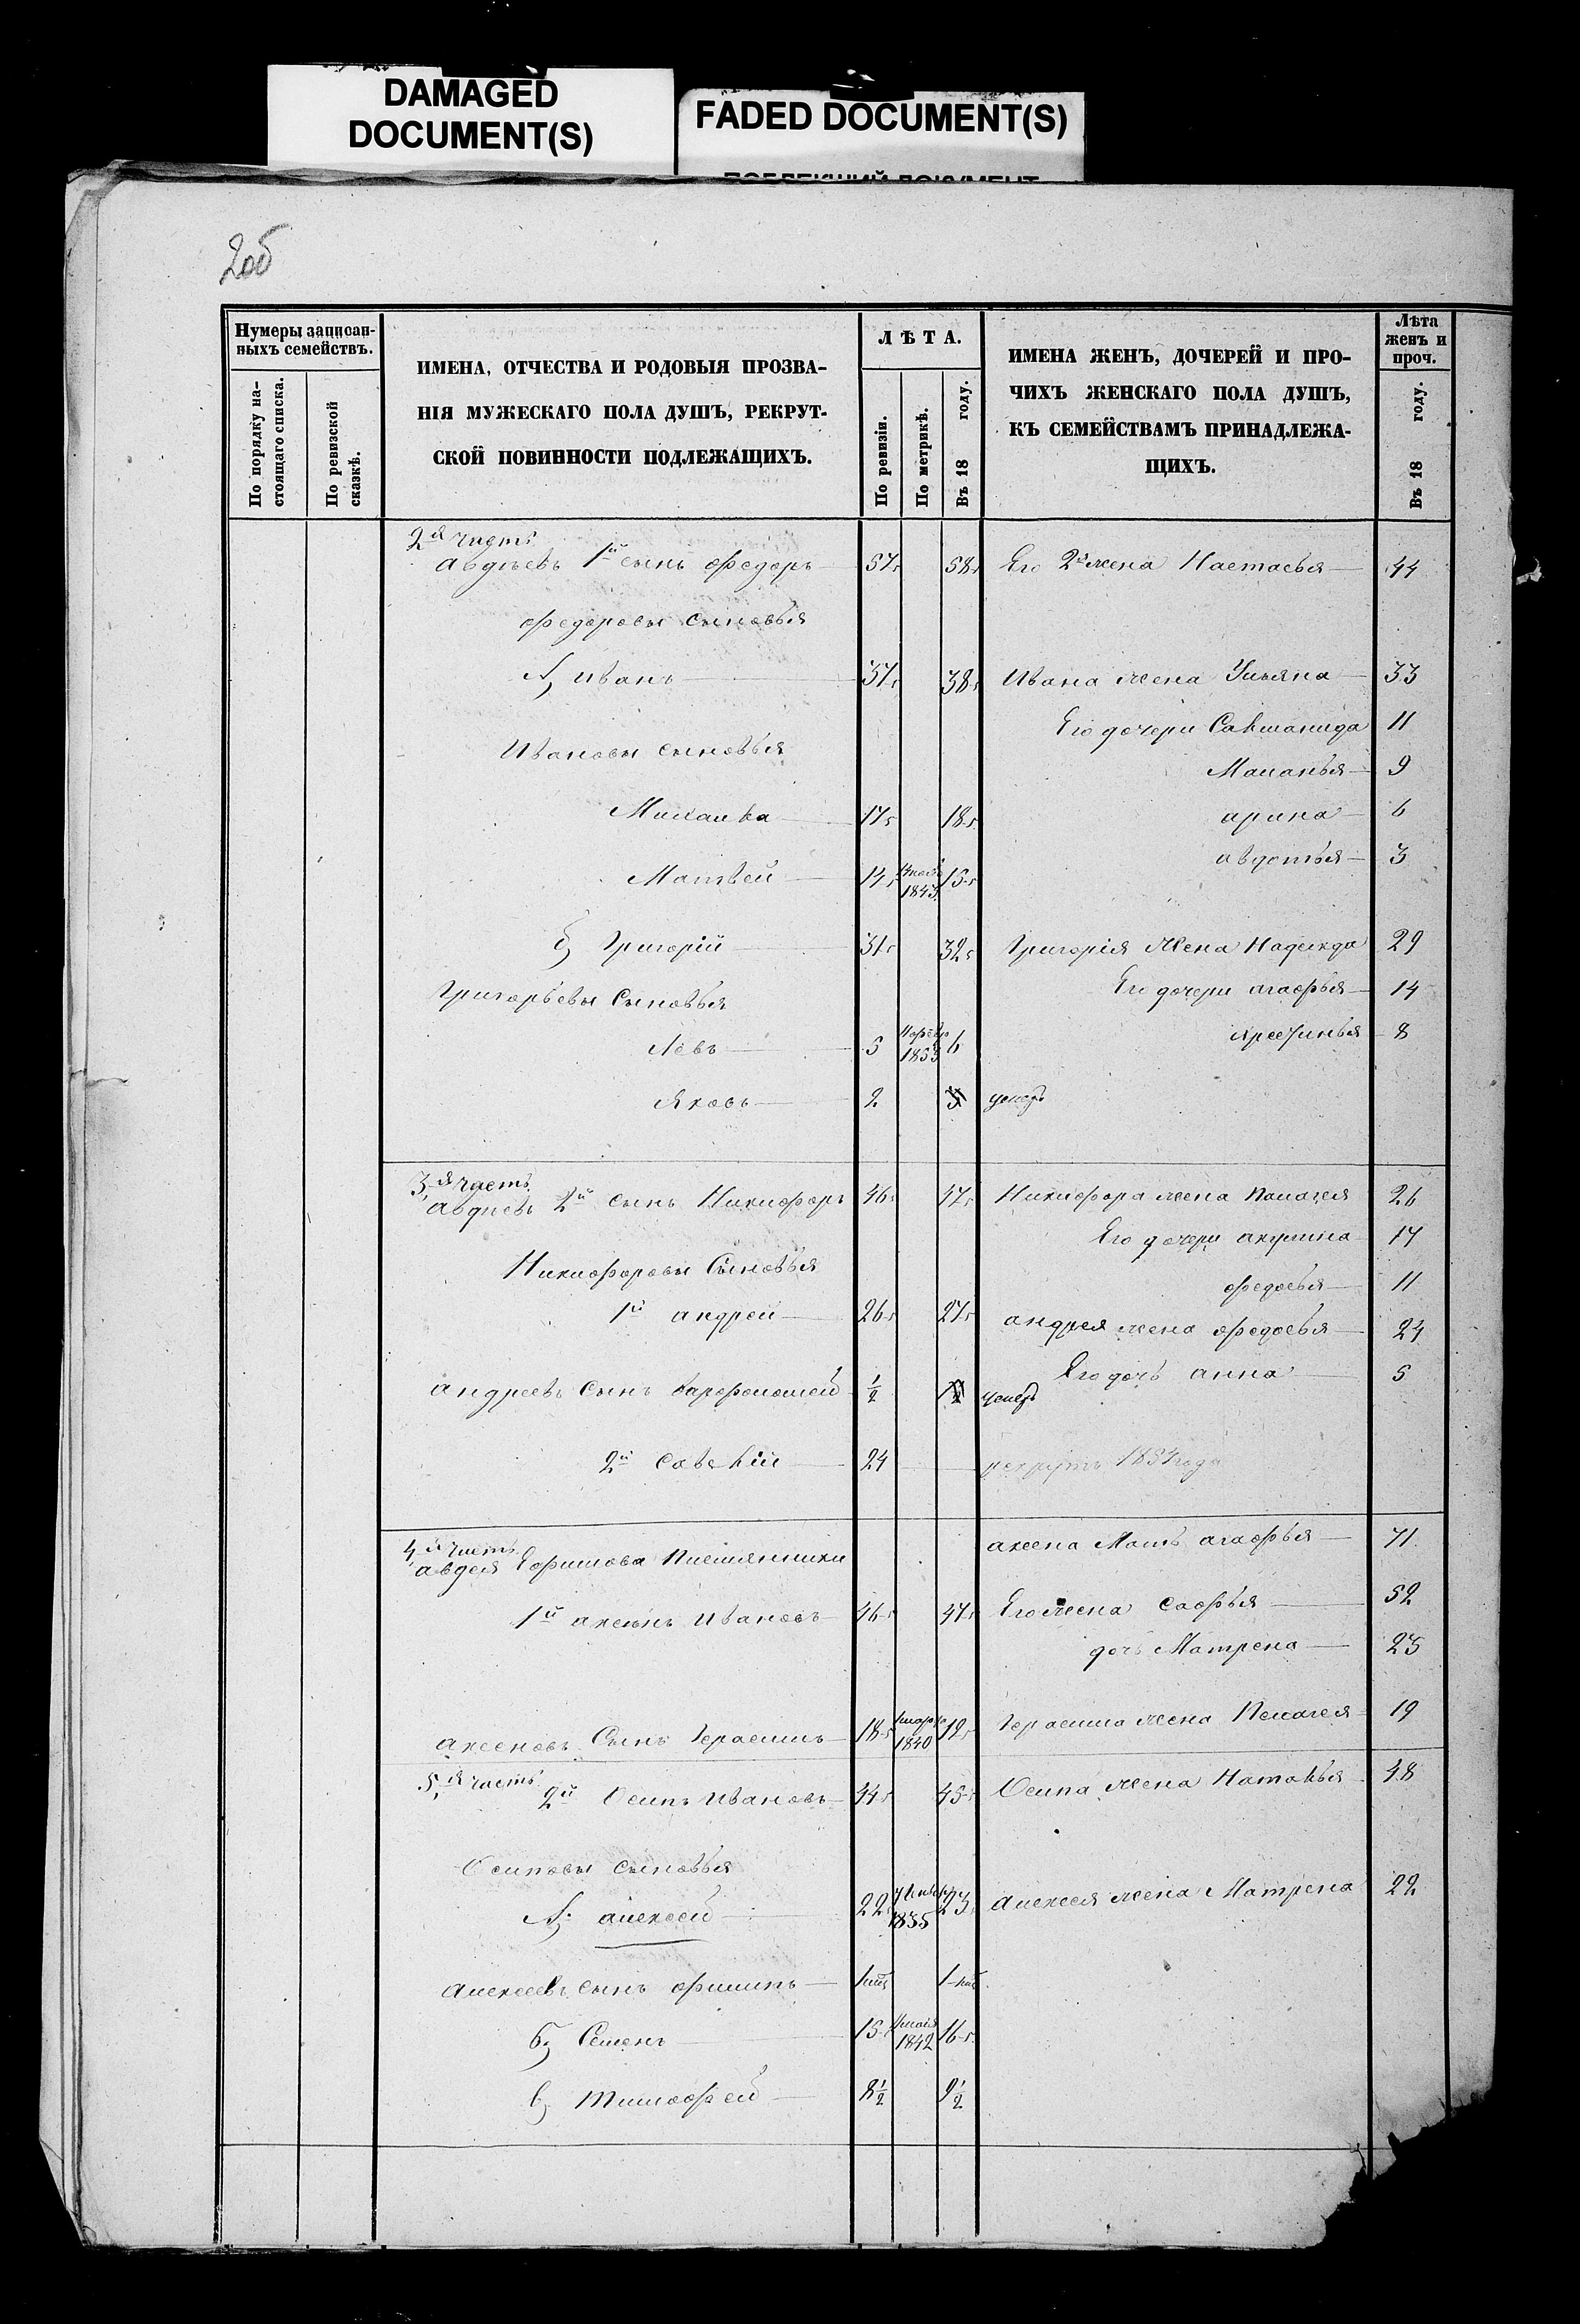 DAMAGED
DOCUMENT(S)
FADED DOCUMENT(S)
2об
Нумеры записан-
ныхъ семействъ.
По порядку на-
стоящаго списка.
По ревизской
сказкѣ.
ИМЕНА, ОТЧЕСТВА И РОДОВЫЯ ПРОЗВА-
НІЯ МУЖЕСКАГО ПОЛА ДУШЪ, РЕКРУТ-
СКОЙ ПОВИННОСТИ ПОДЛЕЖАЩИХЪ.
ЛѢТА.
По ревизіи.
По метрикѣ.
Въ 18 году.
ИМЕНА ЖЕНЪ, ДОЧЕРЕЙ И ПРО-
ЧИХЪ ЖЕНСКАГО ПОЛА ДУШЪ,
КЪ СЕМЕЙСТВАМЪ ПРИНАДЛЕЖА-
ЩИХЪ.
Лѣта
женъ и
проч.
Въ 18 году.
2я часть
авдѣевъ 1й сынъ Федоръ 57 58 Его 2я жена Настасья 44
Федоровы сыновья
А, Иванъ 37 38 Ивана жена Ульяна 33
Его дочери 11
Ивановы сыновья
Маланья 9
Михаила 17 18 арина 6
авдотья 3
Матвей 14 1843 15
б, Григорій 31 32 Григорія жена Надежда 29
Григорьевы сыновья Его дочери агафья 14
Левъ 5 1853 6 8
Яковъ 2 3 умеръ
3я часть
авдѣевъ 2й сынъ Никифоръ 46 47 Никифора жена Палагея 26
Его дочери акулина 17
Никифоровы сыновья
Федосья 11
1й андрей 26 27 андрея жена Федосья 24
Его дочь анна 5
андреевъ сынъ Варфоломей ½ умеръ
2й Савелій 24 рекрутъ 1854 года
4я часть
авдея Ефимова Племянники аксена Мать агафья 71
1й аксенъ Ивановъ 46 47 Его жена Софья 52
дочь Матрена 23
аксеновъ Сынъ Герасимъ 18 марта 1840 19 Герасима жена Пелагея 19
5я часть
2й Осипъ Ивановъ 44 45 Осипа жена Наталья 48
Осиповы сыновья
А, алексей 22 1835 23 алексея жена Матрена 22
алексеевъ сынъ Филипъ 1 1
б, Семенъ 15 1842 16
в, Тимофей 8½ 9½